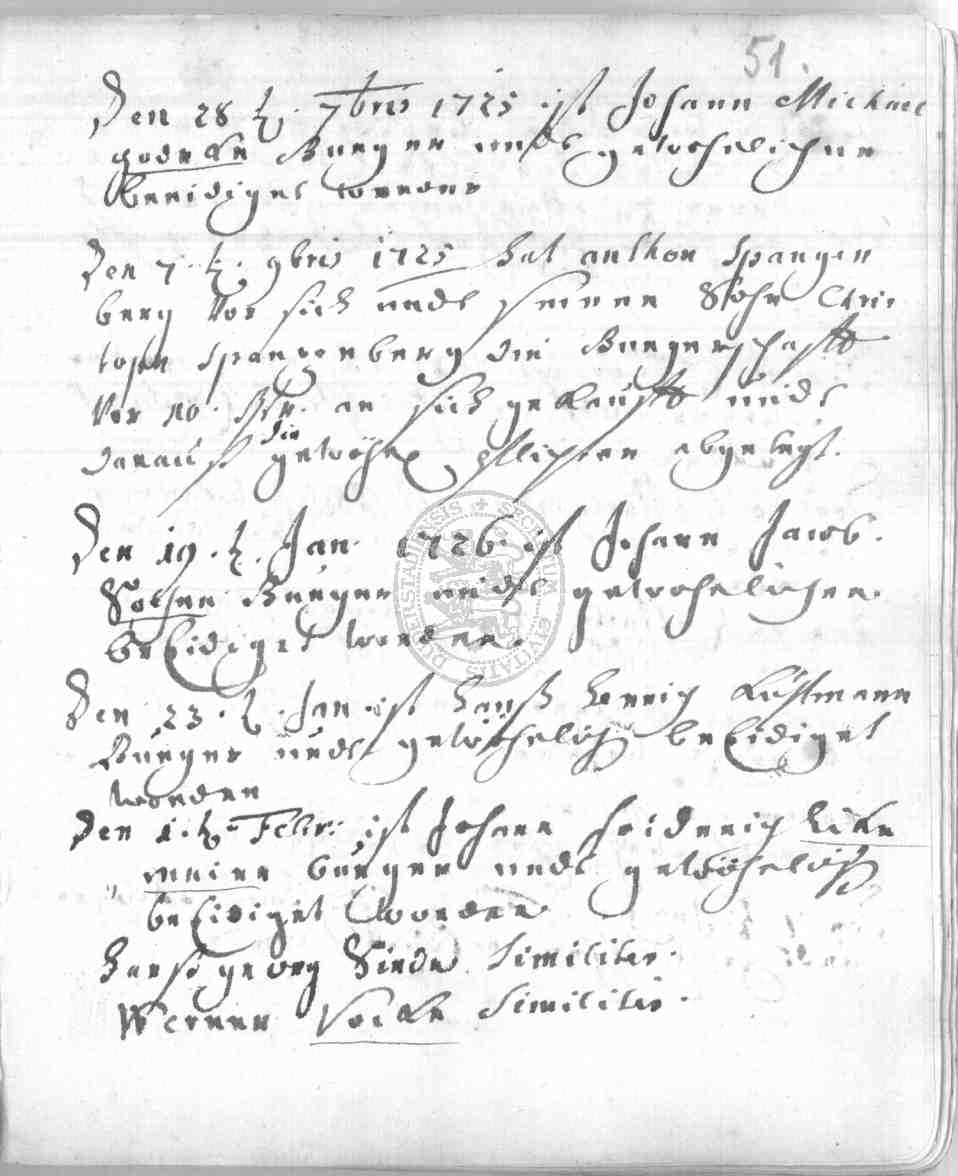 51.
Den 28 t. 7bris 1725 ist Johann Michael
Burger undt gewohnlicher
beeidiget worden
Den 7. t. 9bris 1725 hat anthon Spangen
berg Vor sich undt seinen Sohn Chris
toph Spangenberg die Burgerschafft
Vor 10. an sich gekaufft undt
die
darauf gewöhnl. Pflichten abgelegt.
Den 19. t. Jan. 1726. ist Johann Jacob.
Burger undt gewohnlicher.
beEidiget worden.
Den 23. t. Jan. ist Hanß Henrich Küstmann
Burger undt gewöhnlich beEidiget
worden
Den 1. t. Febr. ist Johann Friderich
meier burger undt gewöhnlich
beEidiget worden
Hanß georg similiter.
Werner similiter.
SECRETUM CIVITATIS DUDERSTADIENSIS